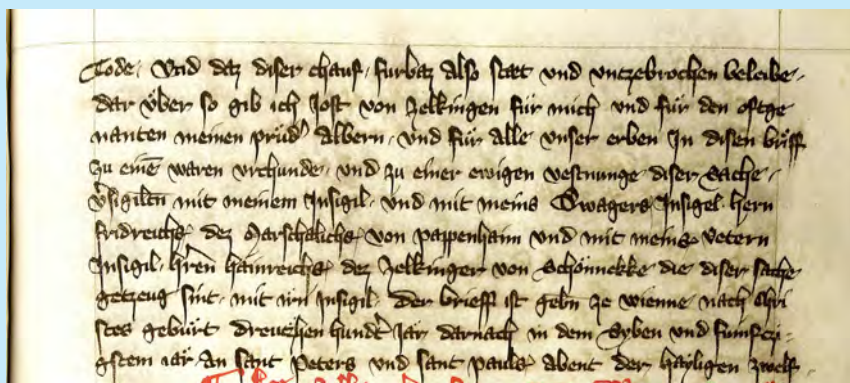 Tode. Vnd daz diser chauf. furbaz also staet vnd vntzebrochen beleibe.
dar vͤber so gib ich Jost von Zelkingen fuͤr mich vnd fuͤr den oftge
nanten meinen pruͤd' Albern. vnd fuͤr alle vnser erben In disen briff
zu eine͞ waren vrchunde. vnd zu einer ewigen vestnunge diser Sache.
v'sigilt͞n mit meinem Insigil. vnd mit meins Swagers Insigel. hern
fridreichs dez Marschalichs von Pappenhaim vnd mit meins Vetern
Insigil. hͤren hainreichs dez Zelkinger von Schoͤnnekke die diser sache
getzeug sint. mit irn Insigil. Der brieff ist gebn ze wienne nach Chri
stes gebuͤrt dreutzhen hundt' Jar darnach in dem Syben vnd fumfczi
gstem iar An sant Peters vnd sant Pauls abent der hayligen zwelf